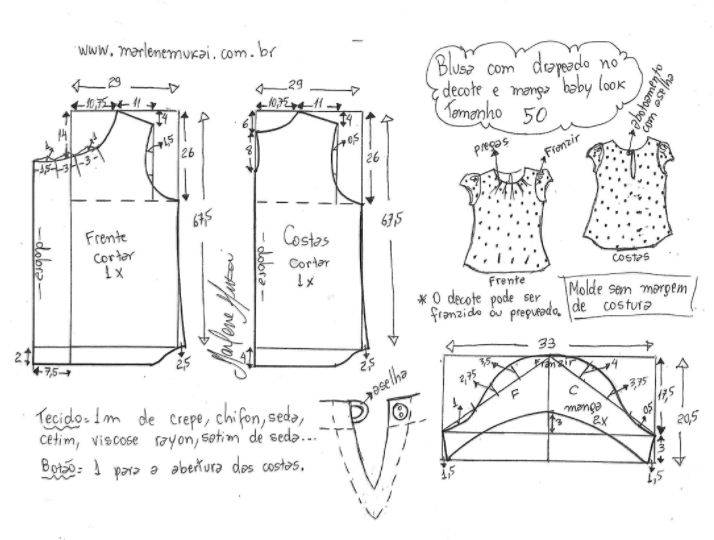 www.marlenemukai.com.br
29
10,75 11
4
14
1
2
1,5
3
3
1,5
26
67,5
Frente
cortar
1x
dobra
2
7,5
2,5
29
10,75 11
6
4
8
0,5
26
67,5
Costas
cortar
1x
dobra
4
2,5
Marlene Mukai
Blusa com drapeado no
decote e manga baby look
Tamanho 50
abotoamento
com aselha
pregas
Franzir
Frente
costas
* O decote pode ser
franzido ou pregueado.
Molde sem margem
de costura
33
Franzir
3,5
4
2,75
3,75
F
C
1
0,5
manga
2x
3
17,5
20,5
3
1,5
1,5
aselha
Tecido= 1m de crepe, chifon, seda,
cetim, viscose rayon, satim de seda...
Botão= 1 para a abertura das costas.